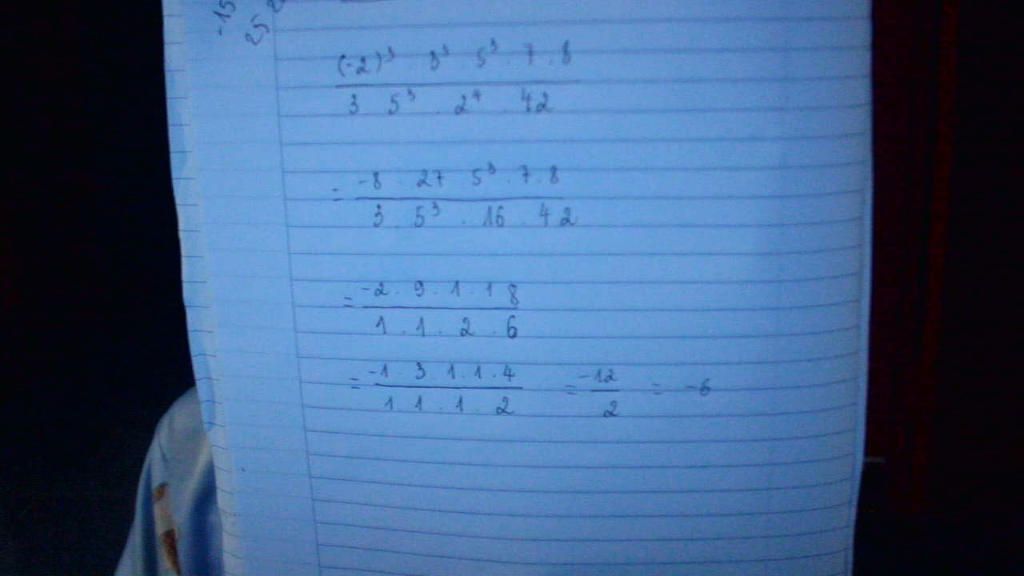 -15
25
(-2)³ . 3³ . 5³ . 7 . 8
3 . 5³ . 2⁴ . 42
= -8 . 27 . 5³ . 7 . 8
3 . 5³ . 16 . 42
= -2 . 9 . 1 . 1 8
1 . 1 . 2 . 6
= -1 3 . 1 . 1 . 4 = -12 = -6
1 . 1 . 1 . 2 2